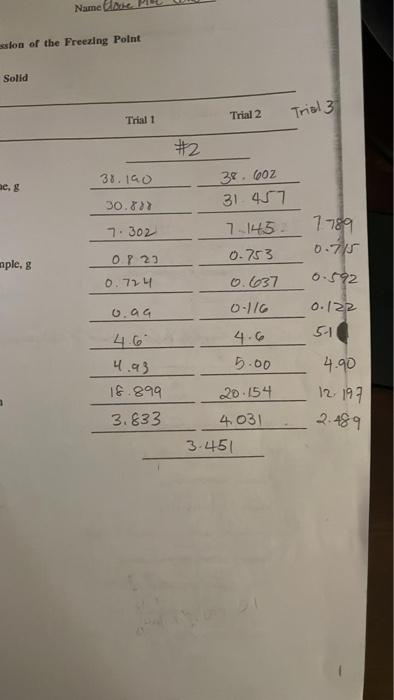 Name
ssion of the Freezing Point
Solid
Trial 1 Trial 2 Trial 3
#2
38.190 38.602
ne, g
30.888 31.457
7.302 7.145 7.789
0.823 0.753 0.715
mple, g
0.724 0.637 0.592
0.99 0.116 0.122
4.6 4.6 5.1
4.93 5.00 4.90
18.899 20.154 12.197
3.833 4.031 2.489
3.451